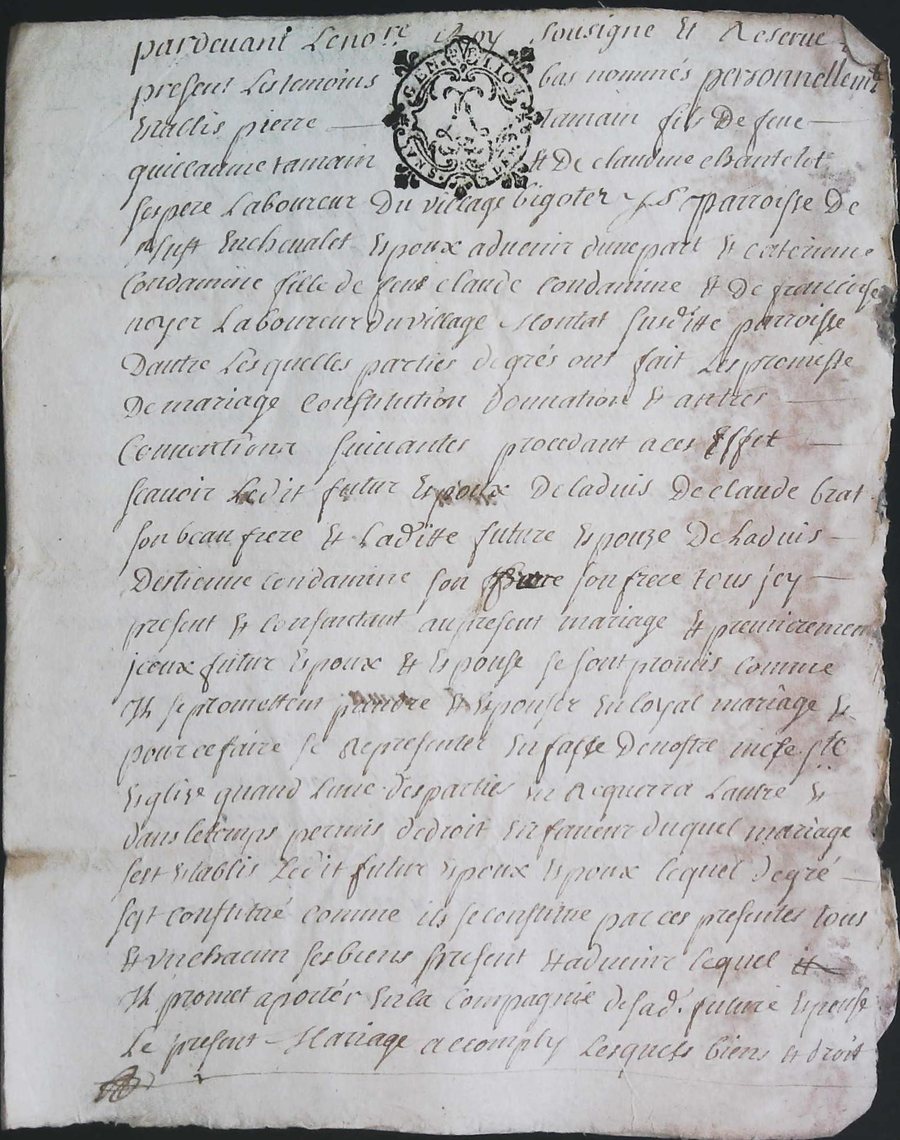 pardevant Lenore Roy sousigne Et Reserve
present Lestemoins bas nommés personnellemt
Etablis pierre tamain fils De feue
quileaume tamain Et De claudine
ses pere Laboureur Du village bigoter parroisse De
st just Enchevalet Epoux advenir dune part Et caterinne
Condamine fille de feut claude Condamine Et De francoise
noyer Laboureur du village Montat susditte parroisse
Dautre Lesquelles parties degrés ont fait Les promesse
De mariage Constitution donnation Et autres
Conventions suivantes procedant a ces Effet
scavoir Ledit futur Epoux De ladvis De claude brat
son beau frere Et Laditte future Epouze De Ladvis
Destienne condamine son son frere tous jcy
present Et consantant au present mariage Et premieremen
jceux futur Epoux Et Epouse se sont promis comme
Ils se promettent prandre Et Epouser En loyal mariage Et
pour ce faire se Representer En fasse De nostre mere ste
Eglise quand Lune des parties En Requerra Lautre Et
dans le temps permis de droit En faveur duquel mariage
sest Etablis Ledit futur Epoux Epoux lequel de gré
sest constitué comme ils se constitue par ces presentes tous
Et un chacun ses biens present Et advenir lequel
Il promet aporter En la Compagnie de sad. future Epouse
Le present Mariage accomply Lesquels biens et droit